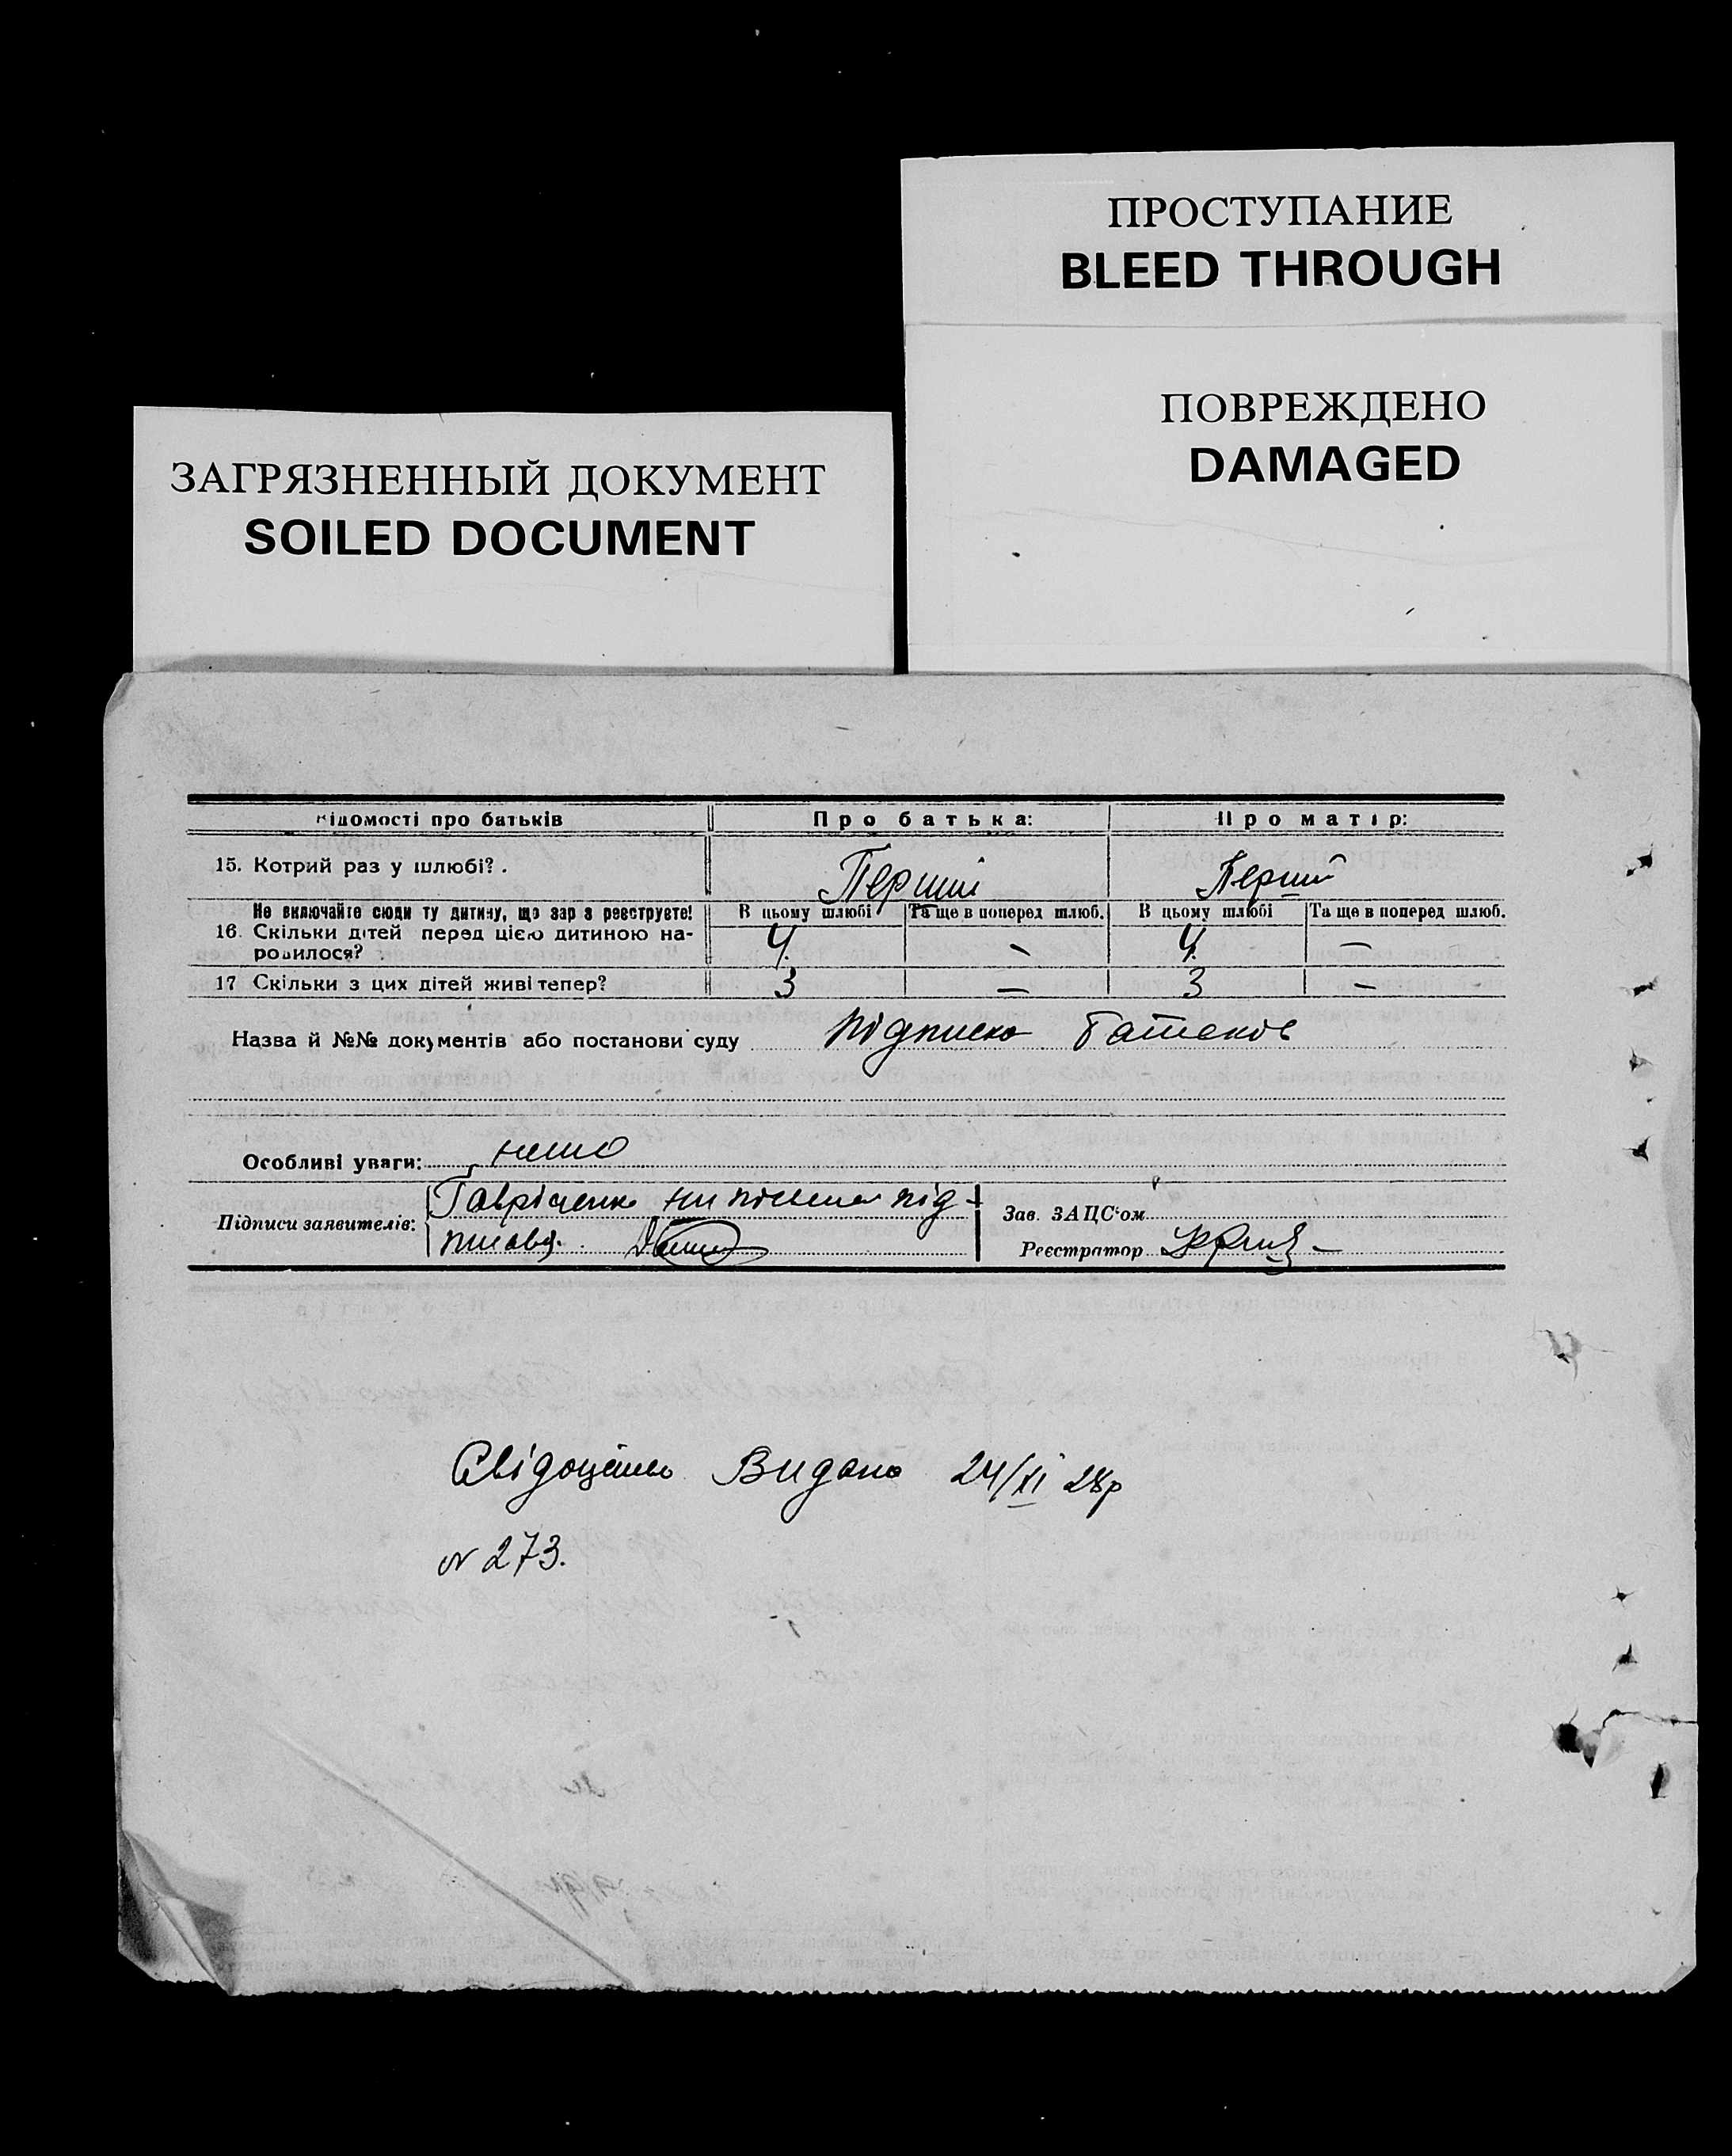 ПРОСТУПАНИЕ
BLEED THROUGH
ПОВРЕЖДЕНО
DAMAGED
ЗАГРЯЗНЕННЫЙ ДОКУМЕНТ
SOILED DOCUMENT
ідомості про батьків Про батька: Про матір:
15. Котрий раз у шлюбі? . Перший Перший
Не включайте сюди ту дитину, що зараз реєструєте! В цьому шлюбі Та ще в поперед шлюб. В цьому шлюбі Та ще в поперед шлюб.
16. Скільки дітей перед цією дитиною на- 4. – 4. –
родилося?
17 Скільки з цих дітей живі тепер? 3 – 3 –
Назва й №№ документів або постанови суду Підписка батьков
Особливі уваги: нема
Підписи заявителів: під-
Зав. ЗАЦС'ом
писавя.
Реєстратор
Свідоцтво Видано 24/XI 28р
№ 273.